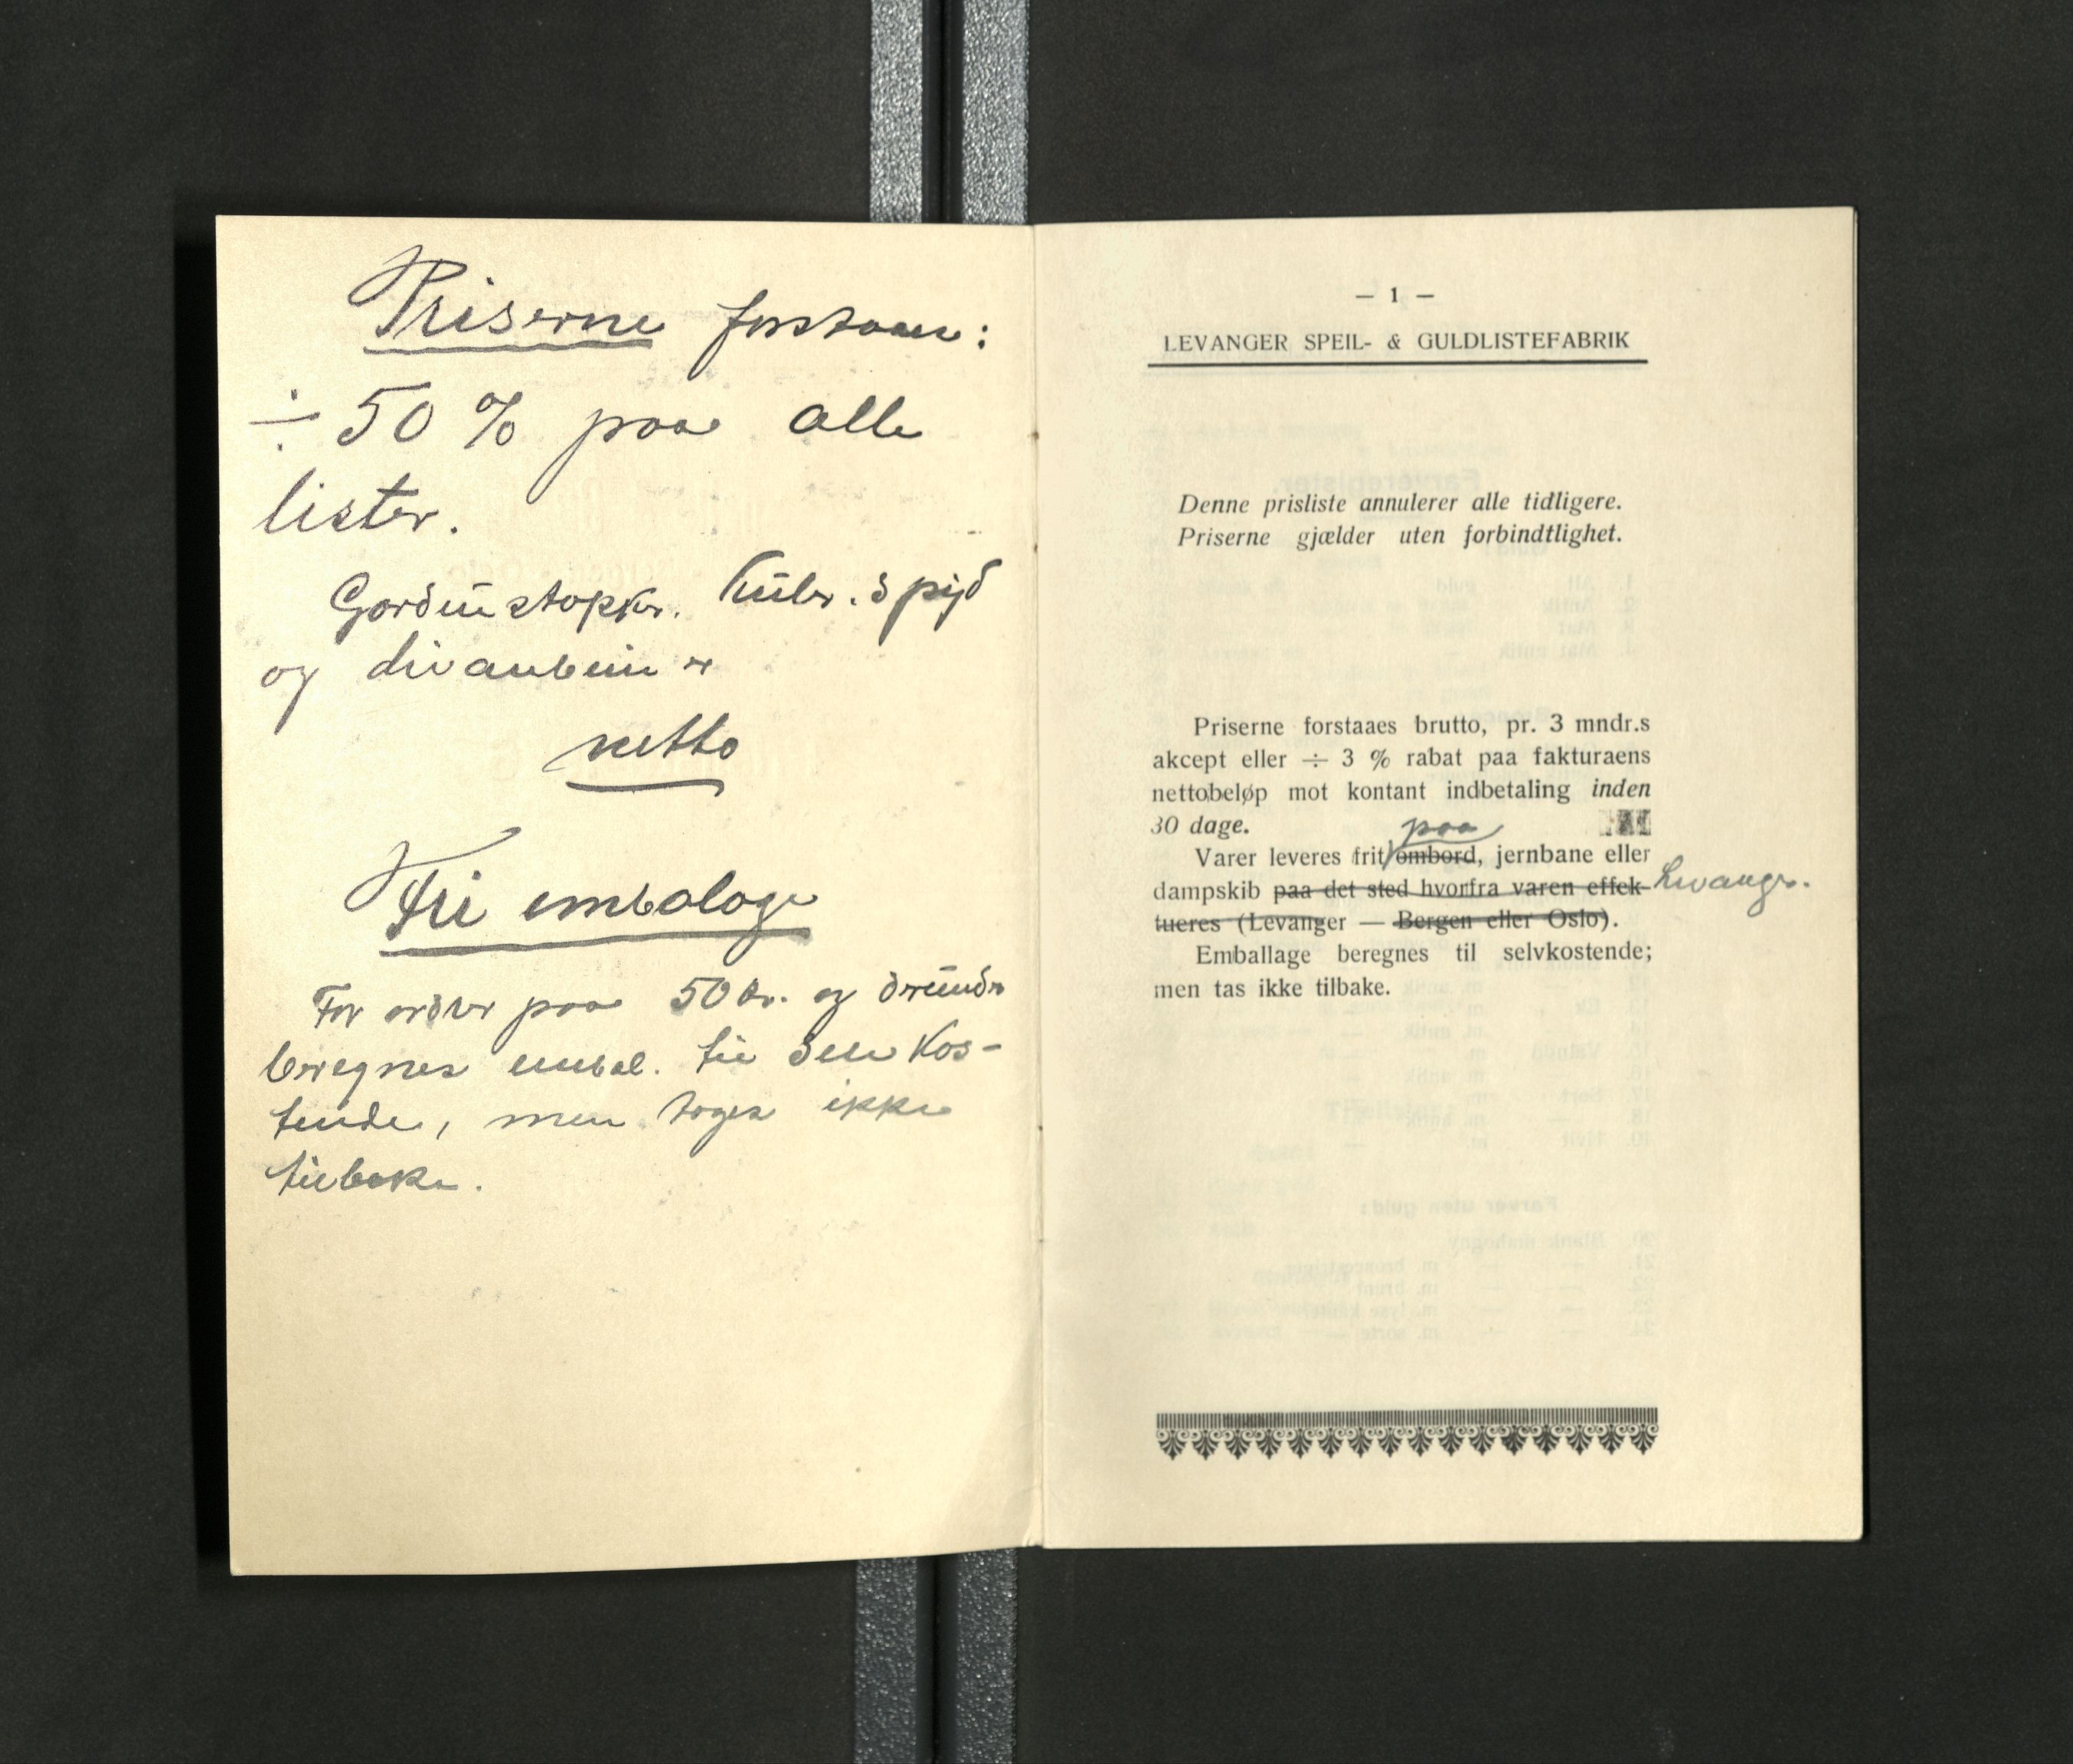 Priserne forstaaes:
÷ 50 % paa alle
lister.
Gardinstopker. Kuler. Spyd
og divanbein er
netto
Fri embalage
For ordrer paa 50 kr. og derunder
beregnes embal. til selvkos-
tende, men tages ikke
tilbake.
— 1 —
LEVANGER SPEIL- & GULDLISTEFABRIK
Denne prisliste annulerer alle tidligere.
Priserne gjælder uten forbindtlighet.
Priserne forstaaes brutto, pr. 3 mndr.s
akcept eller ÷ 3 % rabat paa fakturaens
nettobeløp mot kontant indbetaling inden
30 dage.
paa
Varer leveres frit ombord, jernbane eller
dampskib paa det sted hvorfra varen effek- Levanger.
tueres (Levanger — Bergen eller Oslo).
Emballage beregnes til selvkostende;
men tas ikke tilbake.